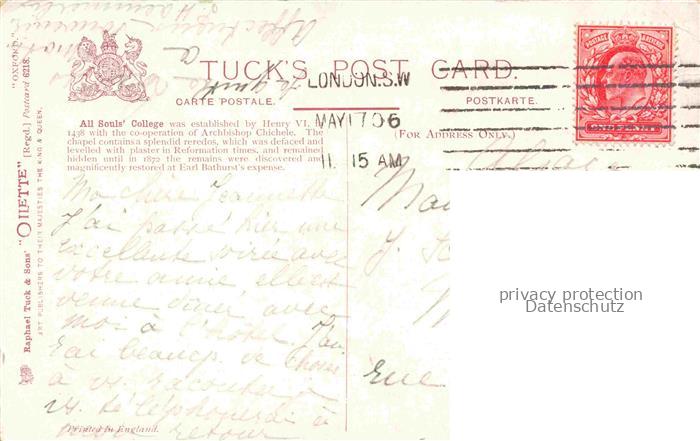 TUCK'S POST CARD.
CARTE POSTALE.
POSTKARTE.
(FOR ADDRESS ONLY.)
LONDON.S.W
MAY 17 06
11. 15 AM
POSTAGE REVENUE
All Souls' College was established by Henry VI.
1438 with the co-operation of Archbishop Chichele. The
chapel contains a splendid reredos, which was defaced and
levelled with plaster in Reformation times, and remained
hidden until in 1872 the remains were discovered and
magnificently restored at Earl Bathurst's expense.
Raphael Tuck & Sons' "OILETTE" (Regd.) Postcard 6218.
"OXFORD."
ART PUBLISHERS TO THEIR MAJESTIES THE KING & QUEEN.
Ma chère Jeannette
J'ai passé hier une
excellente soirée avec
votre amie elle est
venue diner avec
moi à l'hôtel. J'au
rai beaucp. de choses
à vs. raconter
vs. téléphonerai à
mon retour
Printed in England.
J.
rue
privacy protection
Datenschutz